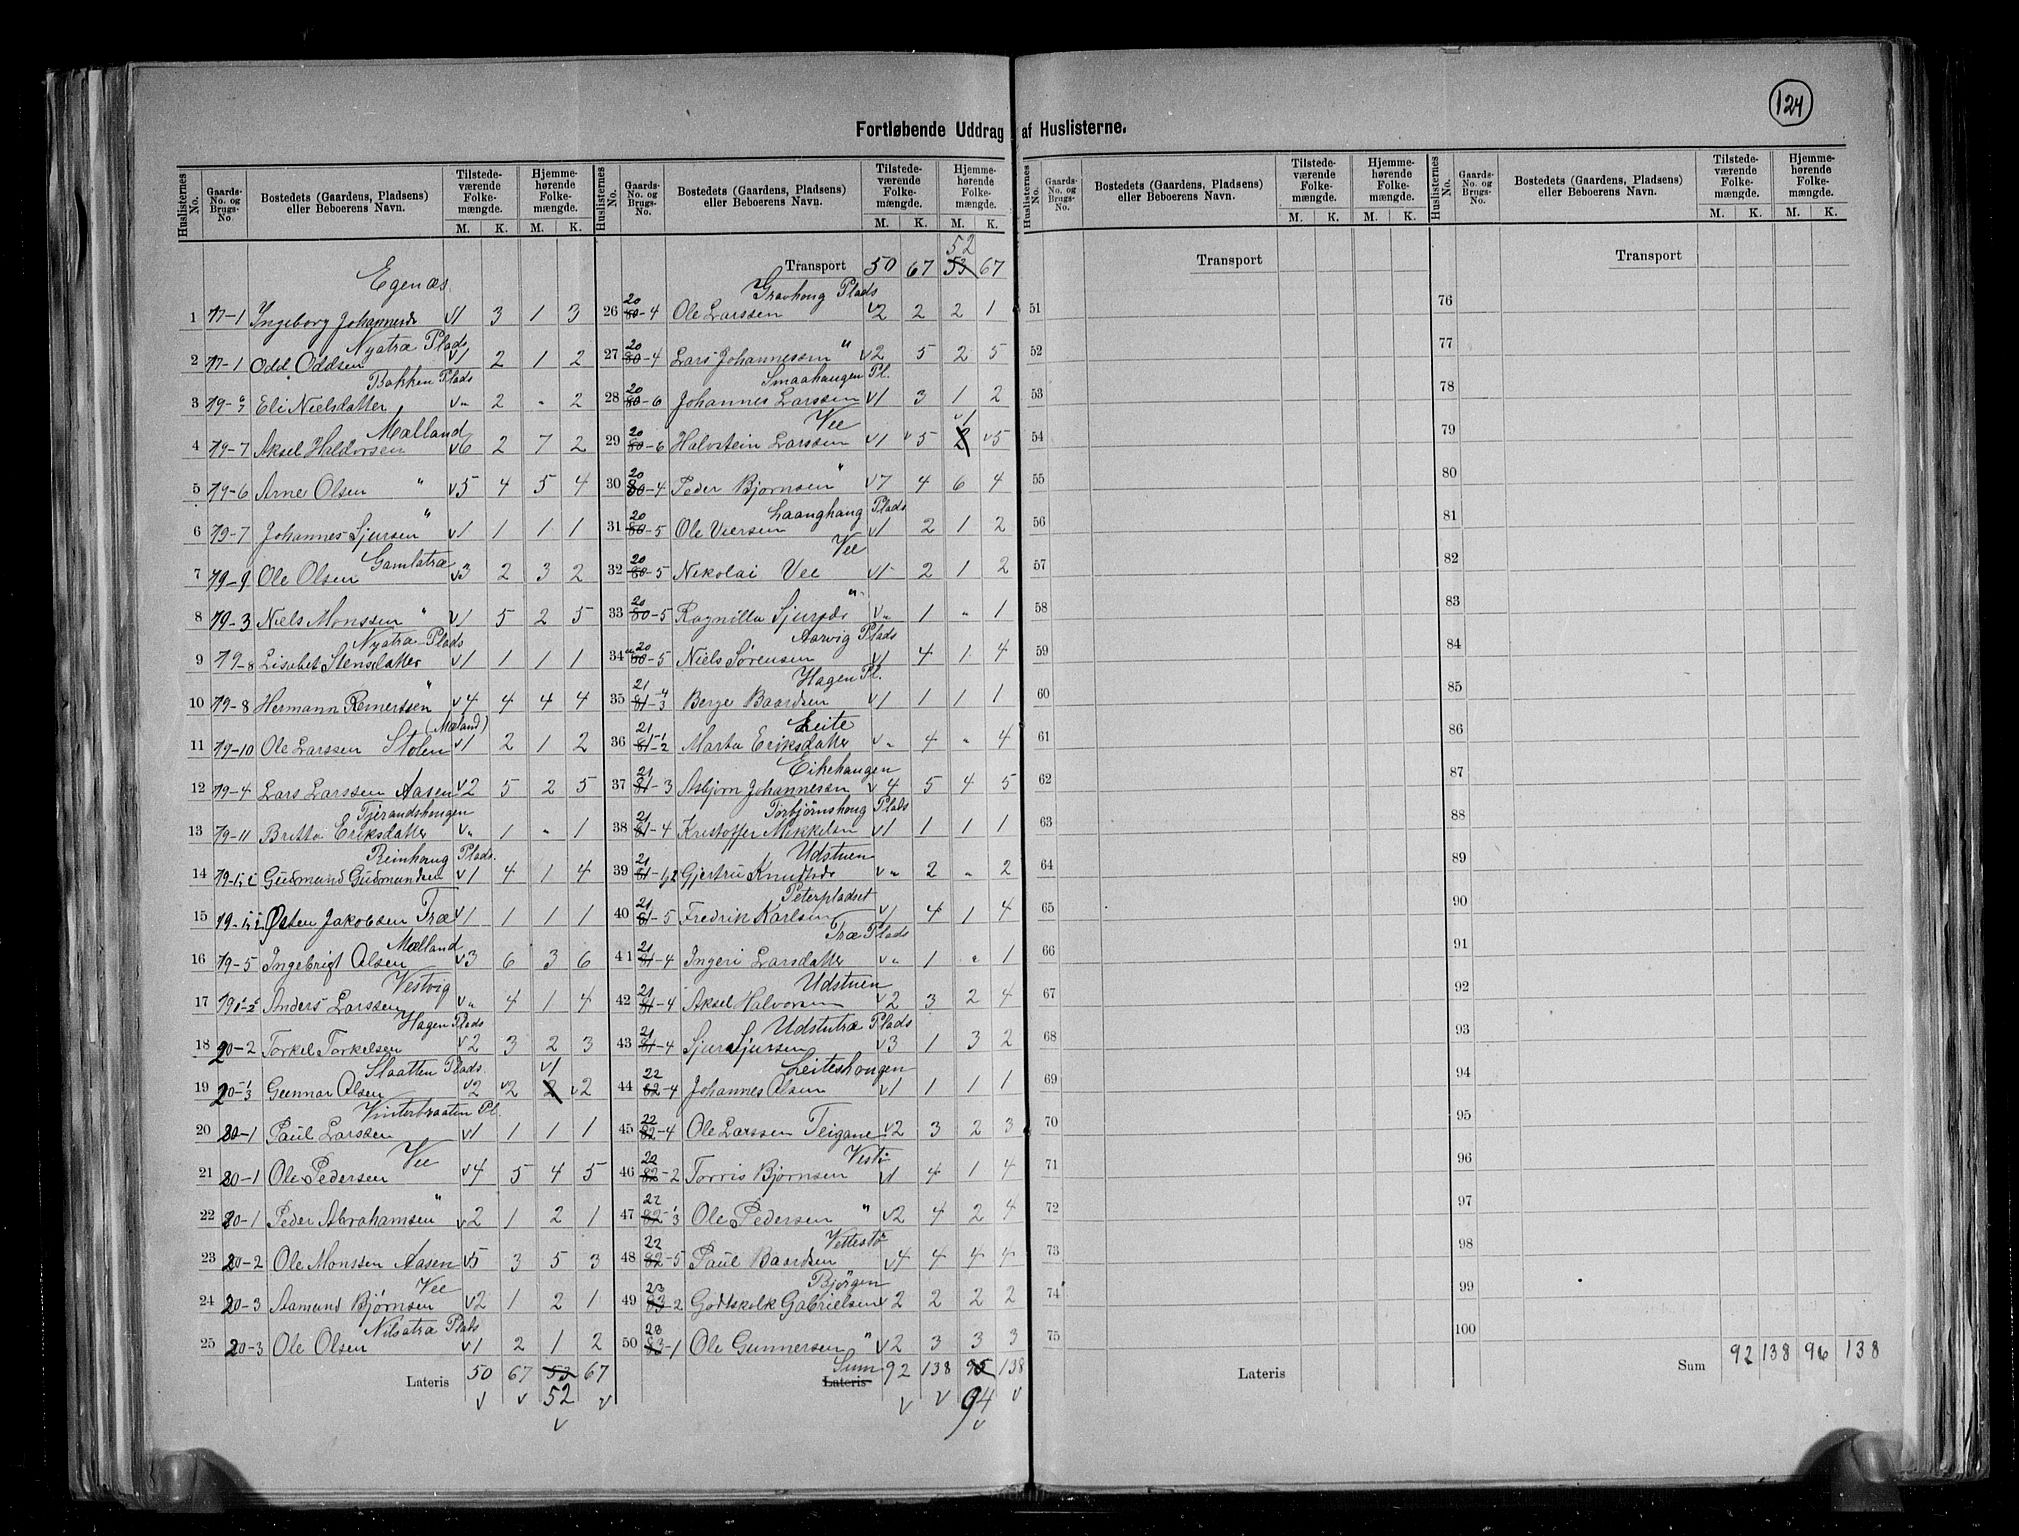 124
Fortløbende Uddrag af Huslisterne.
Huslisternes No. Gaards-No. og Brugs-No. Bostedets (Gaardens, Pladsens) eller Beboerens Navn. Tilstede-værende Folke-mængde. M. K. Hjemme-hørende Folke-mængde. M. K.
Egenæs
1 77-1 Ingeborg Johannesd. v1 3 1 3
Nyatræ Plads
2 77-1 Odd Oddsen v1 2 1 2
Bakken Plads
3 79- Eli Nielsdatter v" 2 " 2
Mælland
4 79-7 Aksel Haldorsen v6 2 7 2
5 79-6 Arne Olsen " v5 4 5 4
6 79-7 Johannes Sjursen " v1 1 1 1
Gamlatræ
7 79-9 Ole Olsen v3 2 3 2
8 79-3 Niels Monssen " v1 5 2 5
Nyatræ Plads
9 79-8 Lisabet Stensdatter v1 1 1 1
10 79-8 Hermann Remertsen " v4 4 4 4
(Mæland)
11 79-10 Ole Larssen Stølen v1 2 1 2
12 79-4 Lars Larssen Aasen v2 5 2 5
Tjerandshougen
13 79-11 Britta Eriksdatter v" 1 " 1
Reinhoug Plads.
14 79-1, Gudmund Gudmundsen v1 4 1 4
15 79-1, Østen Jakobsen Træ v1 1 1 1
Mælland
16 79-5 Ingebrigt Olsen v3 6 3 6
Vestvig
17 79 Anders Larssen v" 4 1 4
Hagen Plads
18 20-2 Torkel Torkelsen v2 3 2 3
Slaatten Plads v1
19 20-1/3 Gunnar Olsen v2 v2 2 v2
Vinterbraaten Pl.
20 20-1 Paul Larssen v1 1 1 1
Vee
21 20-1 Ole Pedersen v4 5 4 5
22 20-1 Peder Abrahamsen " v2 1 2 1
23 20-2 Ole Monssen Aasen v5 3 5 3
Vee
24 20-3 Aamund Bjørnsen v2 1 2 1
Nilsatræ Plads
25 20-3 Ole Olsen v1 2 1 2
Lateris 50 67 53 67
v v 52 v
v
Huslisternes No. Gaards-No. og Brugs-No. Bostedets (Gaardens, Pladsens) eller Beboerens Navn. Tilstede-værende Folke-mængde. M. K. Hjemme-hørende Folke-mængde. M. K.
52
Transport 50 67 53 67
Gravhoug Plads
26 20 80-4 Ole Larssen v2 2 2 1
27 20 80-4 Lars Johannessen " v2 5 2 5
Smaahaugen Pl.
28 20 80-6 Johannes Larssen v1 3 1 2
Vee v1
29 20 80-6 Halvstein Larssen v1 v5 2 v5
30 20 80-4 Peder Bjørnsen " v7 4 6 4
Laanghaug Plads
31 20 80-5 Ole Versen v1 2 1 2
Vee
32 20 80-5 Nikolai Vee v1 2 1 2
33 20 80-5 Ragnilla Sjursdr " v" 1 " 1
Aarvig Plads
34 20 80-5 Niels Sørensen v1 4 1 4
Hagen Pl.
35 21 81-4/3 Berge Baardsen v1 1 1 1
Leite
36 21 81-1/2 Marta Eriksdatter v" 4 " 4
Eikehaugen
37 21 81-3 Asbjørn Johannessen v4 5 4 5
Torbjørnshoug Plads
38 21 81-4 Kristoffer Mikkelsen v1 1 1 1
Udstuen
39 21 81-1,2 Gjertru Knudtsdr v" 2 " 2
Peterpladset
40 21 81-5 Fredrik Karlsen v1 4 1 4
Træ Plads
41 21 81-4 Ingeri Larsdatter v" 1 " 1
Udstuen
42 21 81-4 Aksel Halvorsen v2 3 2 4
Udstutræ Plads
43 21 81-4 Sjur Sjursen v3 1 3 2
Leiteshougen
44 22 82-4 Johannes Olsen v1 1 1 1
45 22 82-4 Ole Larssen Teigane v2 3 2 3
Vestø
46 22 82-2 Torris Bjørnsen v1 4 1 4
47 22 82-1/3 Ole Pedersen " v2 4 2 4
Vettestø
48 22 82-5 Paul Baardsen v4 4 4 4
Bjørgen
49 23 83-2 Godtskolk Gabrielsen v2 2 2 2
50 23 83-1 Ole Gunnersen " v2 3 3 3
Sum 92 138 95 138
Lateris v v 94 v
v
Huslisternes No. Gaards-No. og Brugs-No. Bostedets (Gaardens, Pladsens) eller Beboerens Navn. Tilstede-værende Folke-mængde. M. K. Hjemme-hørende Folke-mængde. M. K.
Transport
51
52
53
54
55
56
57
58
59
60
61
62
63
64
65
66
67
68
69
70
71
72
73
74
75
Lateris
Huslisternes No. Gaards-No. og Brugs-No. Bostedets (Gaardens, Pladsens) eller Beboerens Navn. Tilstede-værende Folke-mængde. M. K. Hjemme-hørende Folke-mængde. M. K.
Transport
76
77
78
79
80
81
82
83
84
85
86
87
88
89
90
91
92
93
94
95
96
97
98
99
100
Sum 92 138 96 138